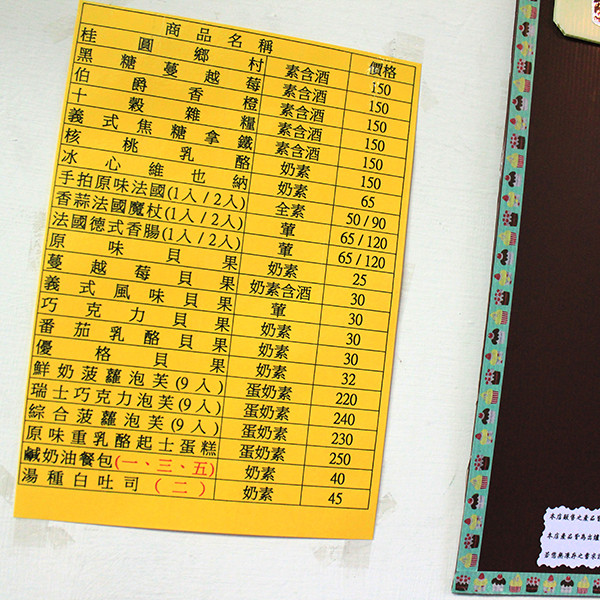 商品名稱 價格
桂圓鄉村 素含酒 150
黑糖蔓越莓 素含酒 150
伯爵香橙 素含酒 150
十穀雜糧 素含酒 150
義式焦糖拿鐵 素含酒 150
核桃乳酪 奶素 150
冰心維也納 奶素 65
手拍原味法國(1人/2人) 全素 50/90
香蒜法國魔杖(1人/2人) 葷 65/120
法國德式香腸(1人/2人) 葷 65/120
原味貝果 奶素 25
蔓越莓貝果 奶素含酒 30
義式風味貝果 葷 30
巧克力貝果 奶素 30
番茄乳酪貝果 奶素 30
優格貝果 奶素 32
鮮奶菠蘿泡芙(9入) 蛋奶素 220
瑞士巧克力泡芙(9入) 蛋奶素 240
綜合菠蘿泡芙(9入) 蛋奶素 230
原味重乳酪起士蛋糕 蛋奶素 250
鹹奶油餐包(一、三、五) 奶素 40
湯種白吐司(二) 奶素 45
本店販售之產品
本店產品皆為出爐